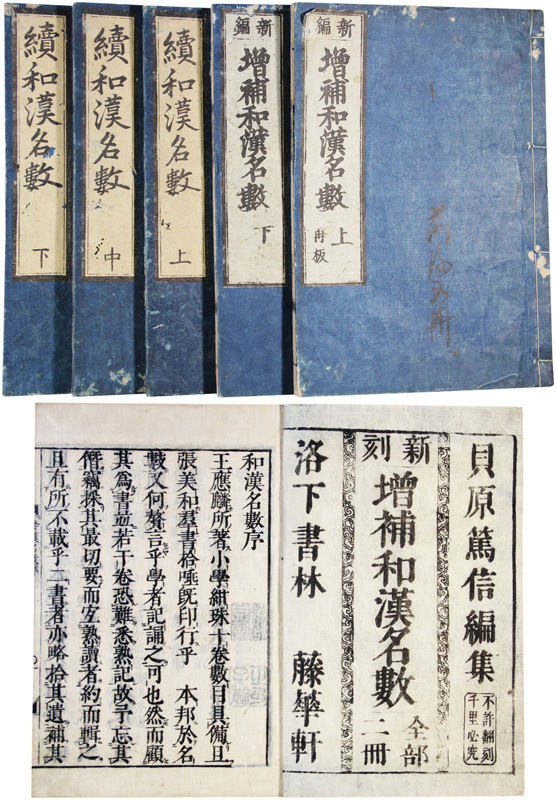 新編
增補和漢名數
上
再板
新編
增補和漢名數
下
續和漢名數
上
續和漢名數
中
續和漢名數
下
貝原篤信編集
不許翻刻
千里必究
新刻
增補和漢名數
全部
二冊
洛下書林 藤華軒
和漢名數序
王應麟所著小學紺珠十卷數目具備且
張美和羣書拾唾既印行乎 本邦於名
數又何贅言乎學者記誦之可也然而顧
其爲書逾若干卷恐難悉熟記故予忘其
僭竊採其最切要而宜熟讀者約而輯之
且有所不載乎二書者亦略拾其遺補其